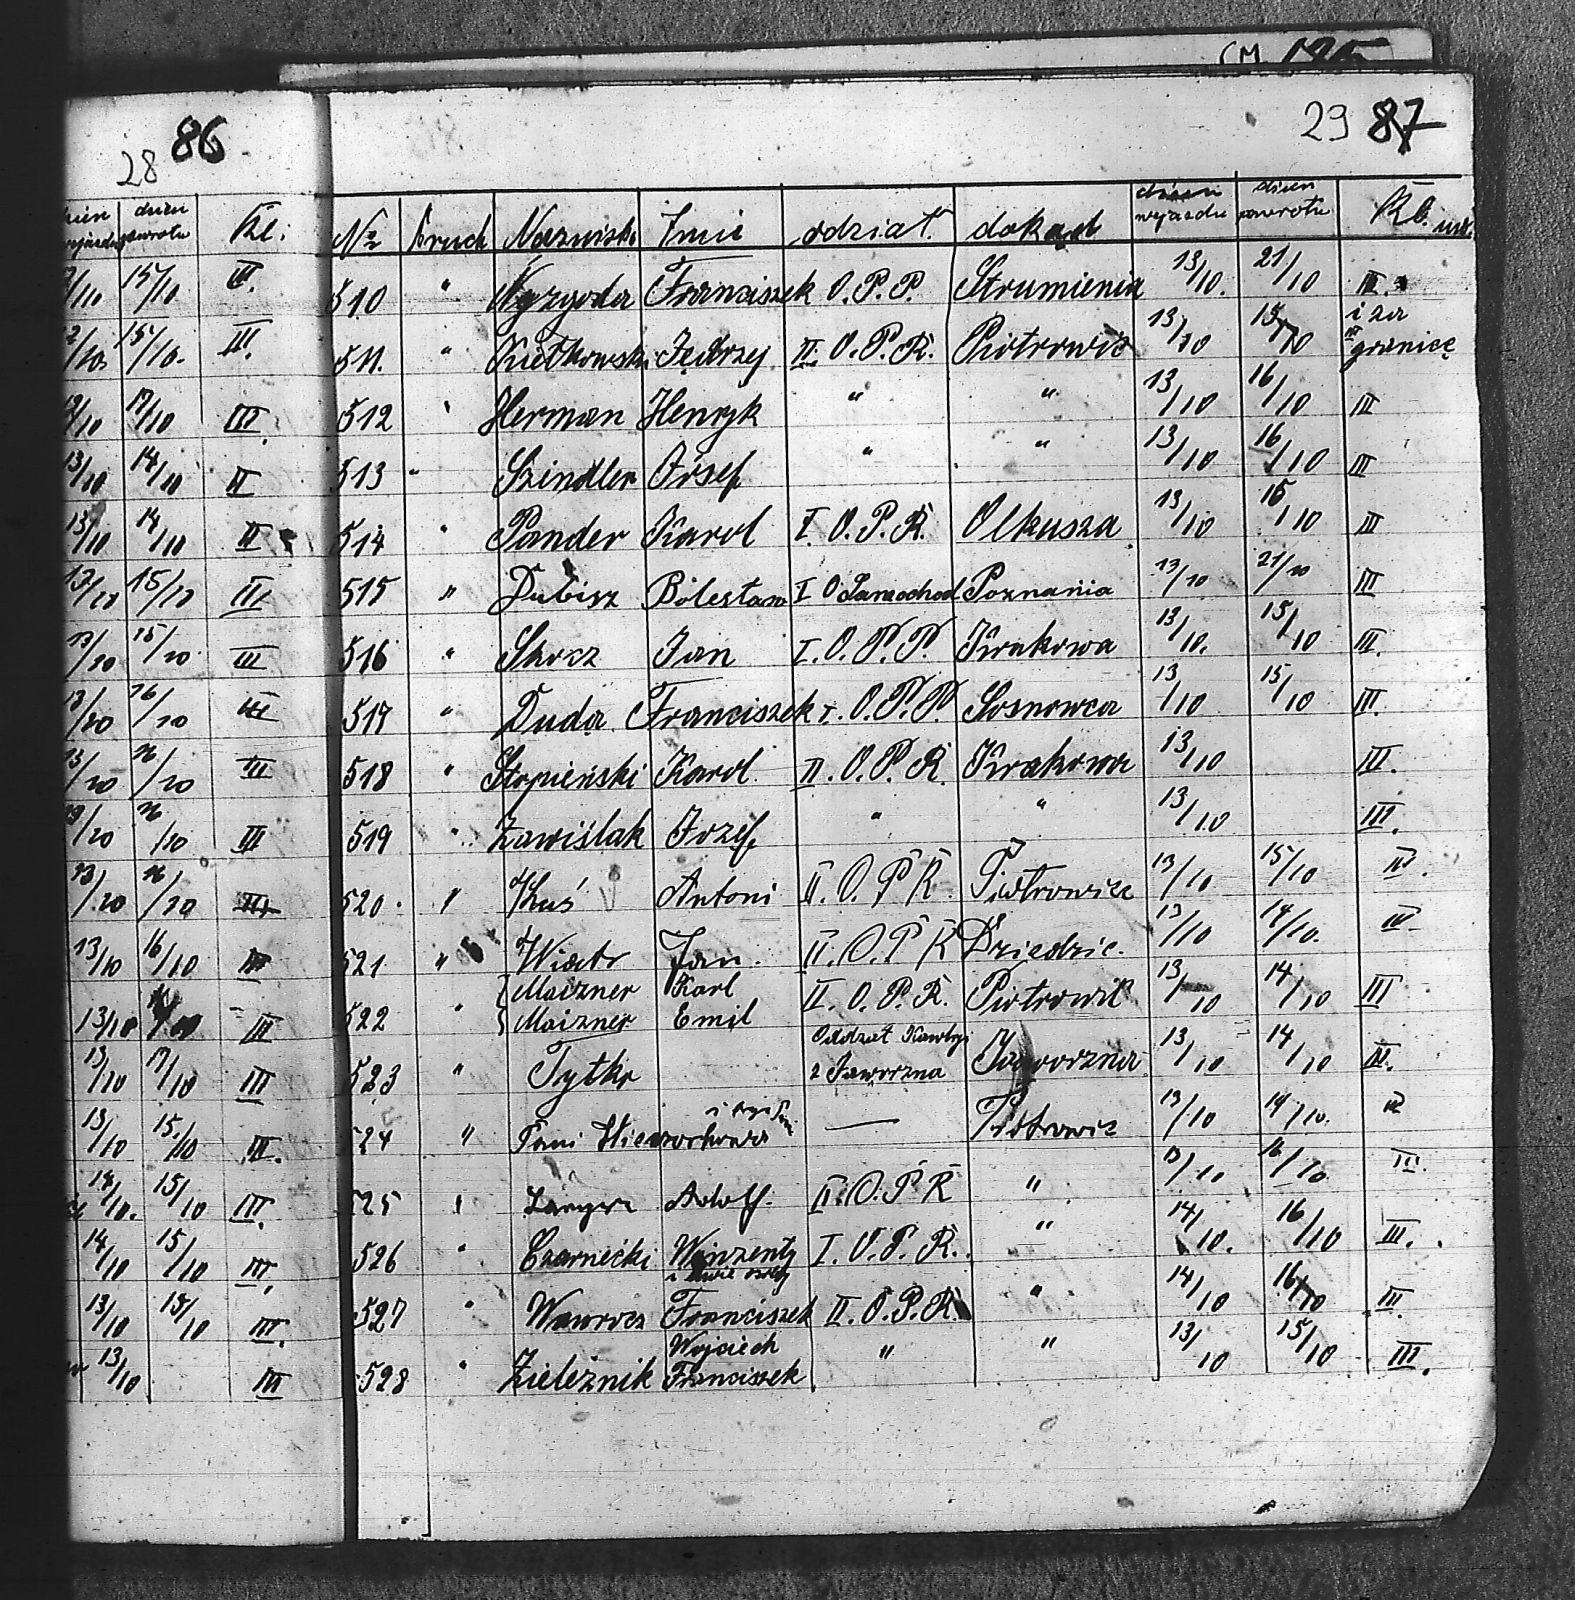 CM. 125
28 86
29 87
dzień wyjazdu dzień powrotu Kl.
№ Druch Nazwisko Imię odział dokąd dzień wyjazdu dzień powrotu Kl. uw.
15/10 III.
510 " Franciszek O.P.P. Strumienia 13/10. 21/10 III.
i za granicę
15/10. III.
511. " Jędrzej II. O.P.K. Piotrowic 13/10 15/10
17/10 III.
512 " Herman Henryk " " 13/10 16/10 III
13/10 14/10 III
513 " Szindler Józef " " 13/10 16/10 III
13/10 14/10 III
514 " Pander Karol I. O.P.K. Olkusza 13/10 15/10 III
13/10 15/10 III
515 " Dubisz Bolesław I O Samochod Poznania 13/10 21/10 III
13/10 15/10 III
516 " Skocz Jan I. O.P.P. Krakowa 13/10. 15/10 III.
13/10 16/10 III
517 " Duda Franciszek I. O.P.P. Sosnowca 13/10 15/10 III.
13/10 16/10 III
518 " Stopieński Karol II. O.P.K. Krakowa 13/10 III.
16/10 III
519 " Zawiślak Józef " " 13/10 III.
13/10 16/10 III
520. " Kuś Antoni II. O.P.K. Piotrowice 13/10 15/10 III.
13/10 16/10 III
521 " Wiatr Jan. II. O.P.K Dziedzic. 13/10 14/10. III
Maizner Karl
13/10 III
522 " Maizner Emil II. O.P.K. Piotrowic 13/10 14/10 III
Oddział Kawleji
13/10 17/10 III
523 " Tytko z Jaworzna Jaworzna 13/10 14/10 III.
13/10 15/10 III.
524 " Pani — Piotrowic 13/10 14/10. III
15/10 III.
525 " Adolf. II. O.P.K " 13/10 16/10. III.
14/10 15/10 III.
526 " Czarnecki Winzenty I. O.P.K. " 14/10. 16/10 III.
i dwie osoby
13/10 15/10 III.
527 " Wawrocz Franciszek II. O.P.K. " 14/10 16/10 III.
Wojciech
13/10 III
528 " Zieleźnik Franciszek " " 13/10 15/10 III.